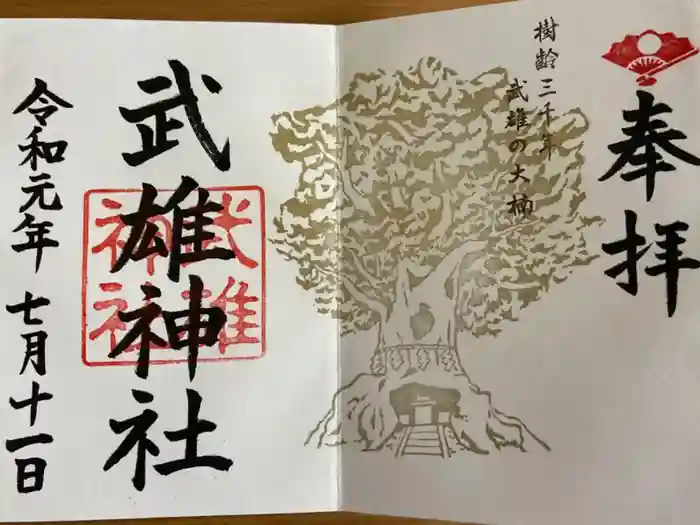 奉拝
樹齢三千年
武雄の大楠
武雄神社
武雄神社
令和元年 七月十一日